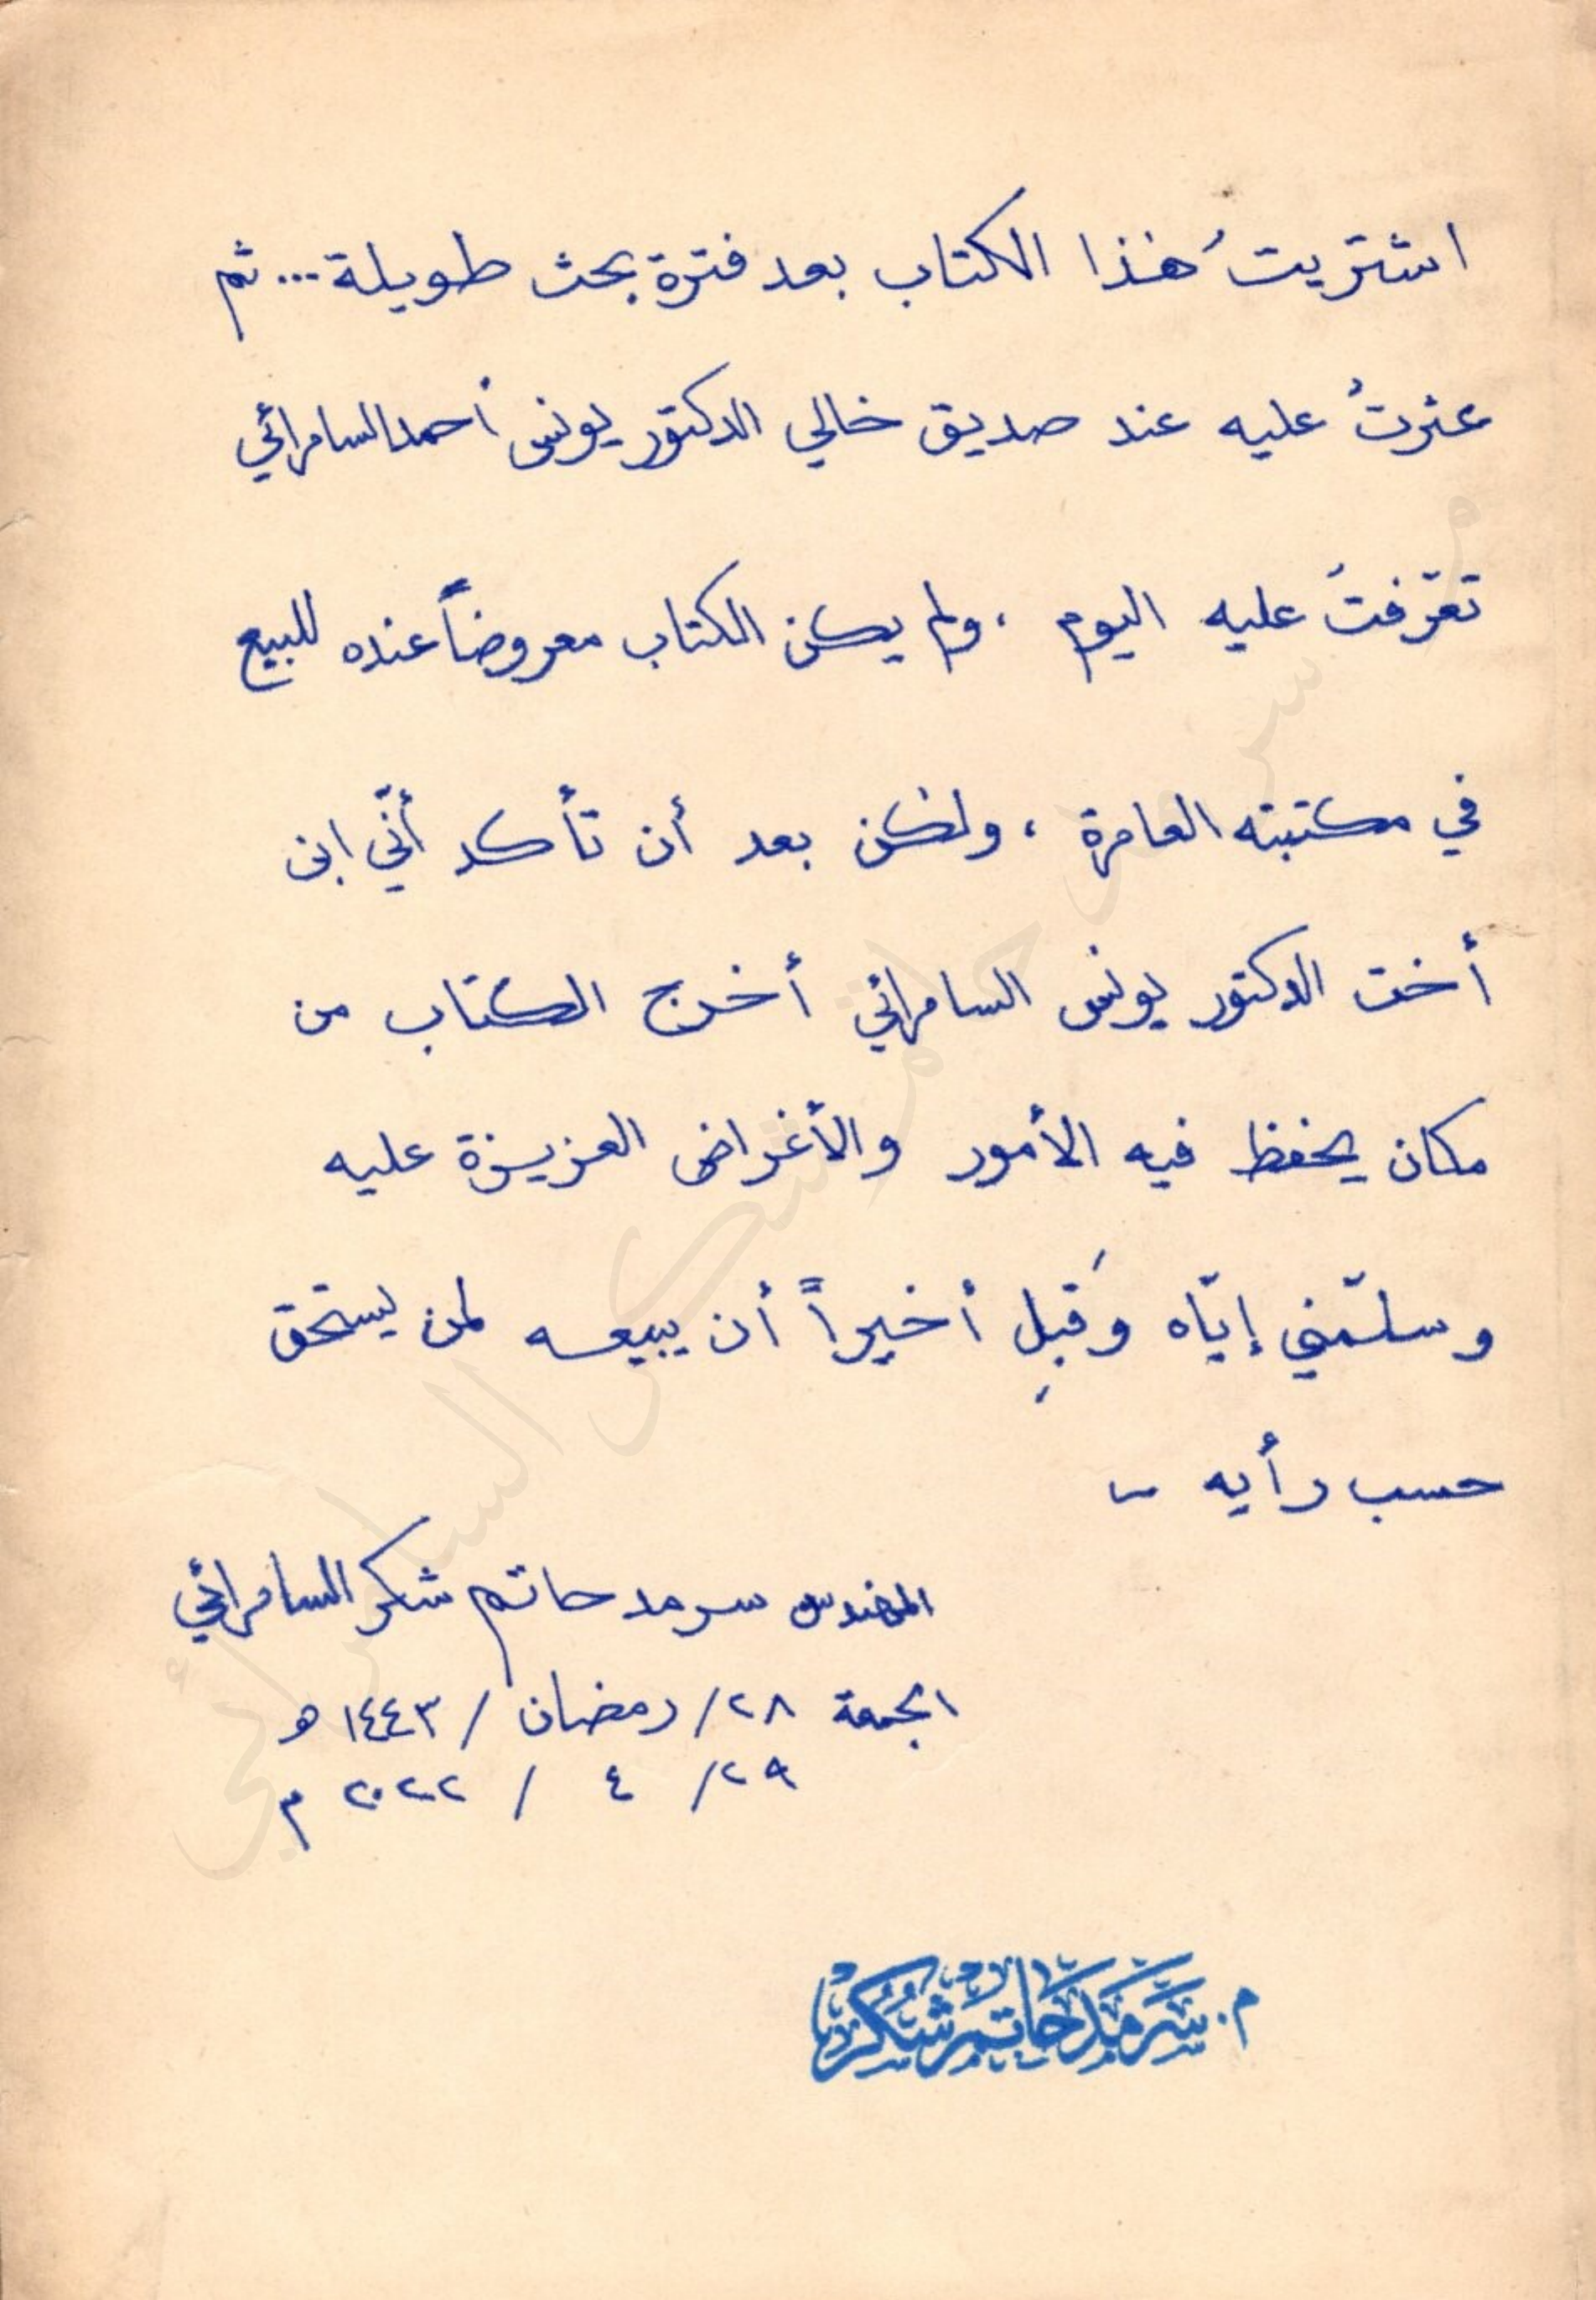 اشتريتُ هٰذا الكتاب بعد فترة بحث طويلة... ثم
عثرتُ عليه عند صديق خالي الدكتور يونس أحمد السامرائي
تعرّفتُ عليه اليوم ، ولم يكن الكتاب معروضاً عنده للبيع
في مكتبته العامرة ، ولٰكن بعد أن تأكد أنّي ابن
أخت الدكتور يونس السامرائي أخرج الكتاب من
مكان يحفظ فيه الأمور والأغراض العزيزة عليه
وسلّمني إيّاه وَقَبِل أخيراً أن يبيعه لمن يستحق
حسب رأيه ~
المهندس سرمد حاتم شكر السامرائي
الجمعة ٢٨/ رمضان / ١٤٤٣ هـ
٢٩/ ٤ / ٢٠٢٢ م
م. سَرْمَد حَاتِم شُكْر
م. سرمد حاتم شكر السامرائي